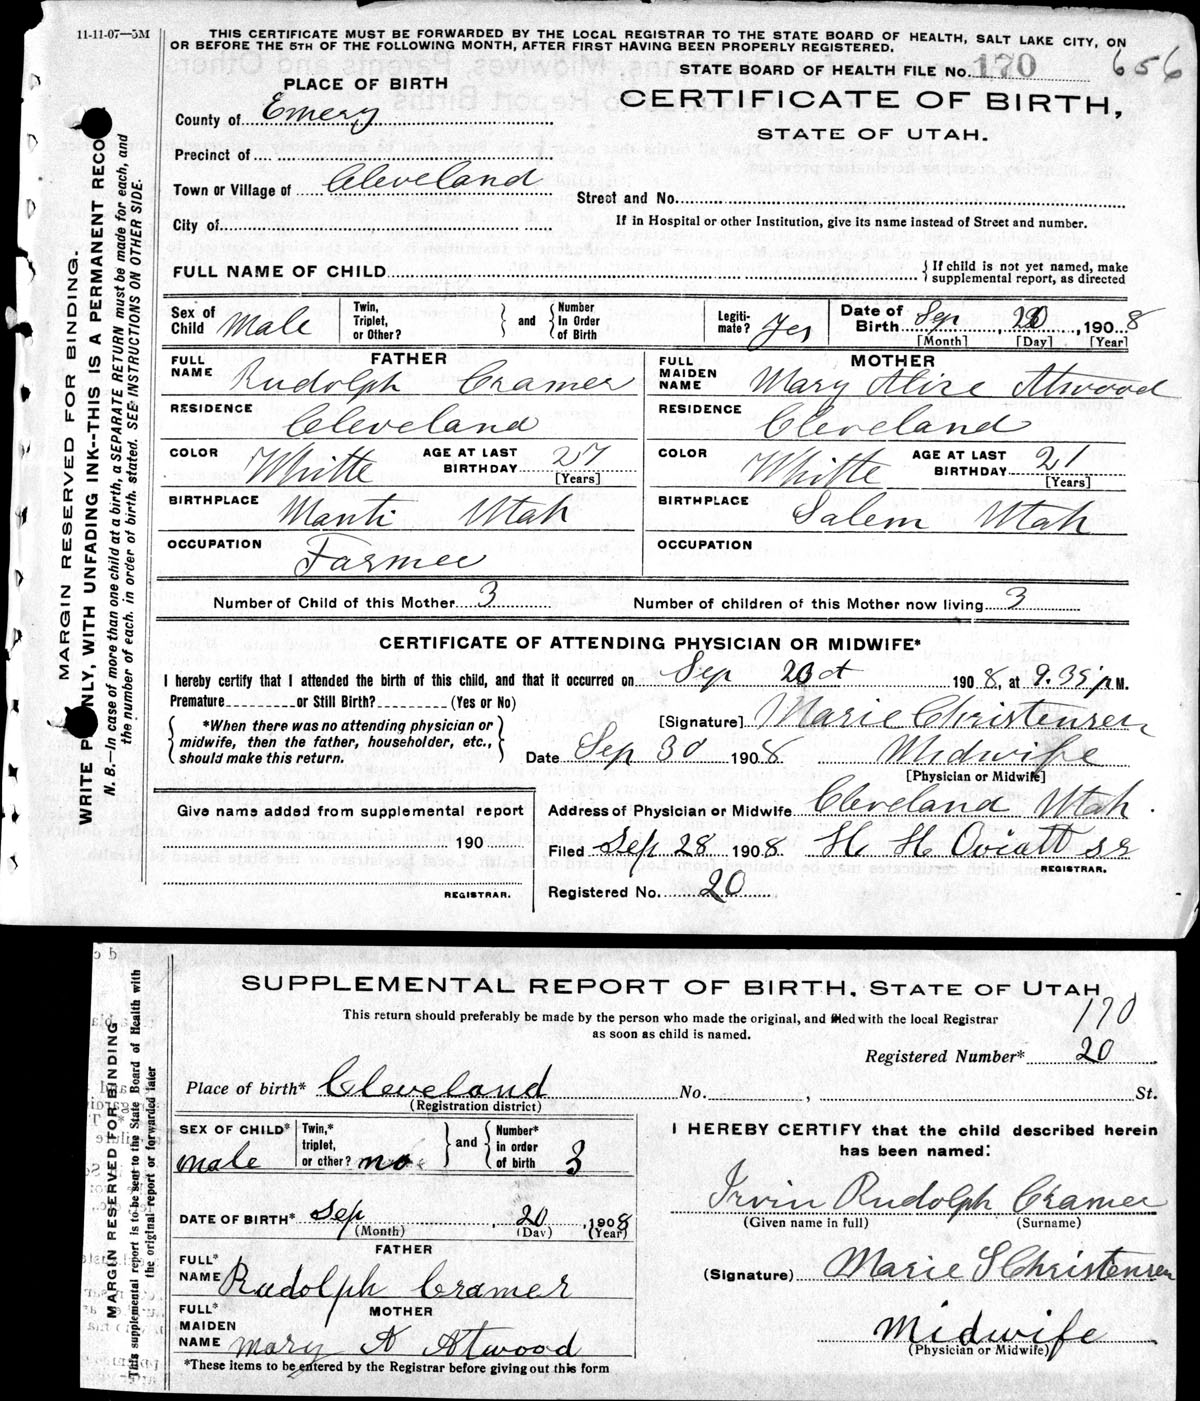 11-11-07—5M
THIS CERTIFICATE MUST BE FORWARDED BY THE LOCAL REGISTRAR TO THE STATE BOARD OF HEALTH, SALT LAKE CITY, ON
OR BEFORE THE 5TH OF THE FOLLOWING MONTH, AFTER FIRST HAVING BEEN PROPERLY REGISTERED.
STATE BOARD OF HEALTH FILE No. 170 656
PLACE OF BIRTH
CERTIFICATE OF BIRTH,
STATE OF UTAH.
County of Emery
Precinct of
Town or Village of Cleveland
Street and No.
City of
If in Hospital or other Institution, give its name instead of Street and number.
FULL NAME OF CHILD
{ If child is not yet named, make
supplemental report, as directed
Sex of Child Male
Twin, Triplet, or Other? } and { Number In Order of Birth
Legiti- mate? Yes
Date of Birth Sep, 20, 1908
[Month] [Day] [Year]
FATHER
FULL NAME Rudolph Cramer
RESIDENCE Cleveland
COLOR Whitte
AGE AT LAST BIRTHDAY 27
[Years]
BIRTHPLACE Manti Utah
OCCUPATION Farmer
MOTHER
FULL MAIDEN NAME Mary Alice Atwood
RESIDENCE Cleveland
COLOR Whitte
AGE AT LAST BIRTHDAY 21
[Years]
BIRTHPLACE Salem Utah
OCCUPATION
Number of Child of this Mother 3
Number of children of this Mother now living 3
CERTIFICATE OF ATTENDING PHYSICIAN OR MIDWIFE*
I hereby certify that I attended the birth of this child, and that it occurred on Sep 20 1908, at 9.35 p M.
Premature or Still Birth? (Yes or No)
*When there was no attending physician or
midwife, then the father, householder, etc.,
should make this return.
[Signature] Marie Christensen
Date Sep 30 1908 Midwife
[Physician or Midwife]
Give name added from supplemental report
190
REGISTRAR.
Address of Physician or Midwife Cleveland Utah.
Filed Sep 28 1908 H H Oviatt sr
REGISTRAR.
Registered No. 20
MARGIN RESERVED FOR BINDING.
WRITE ONLY, WITH UNFADING INK--THIS IS A PERMANENT RECO
N. B.—In case of more than one child at a birth, a SEPARATE RETURN must be made for each, and
the number of each, in order of birth, stated. SEE INSTRUCTIONS ON OTHER SIDE.
SUPPLEMENTAL REPORT OF BIRTH, STATE OF UTAH
This return should preferably be made by the person who made the original, and filed with the local Registrar
as soon as child is named.
170
Registered Number* 20
Place of birth* Cleveland No. , St.
(Registration district)
SEX OF CHILD* male
Twin,* triplet, or other? no } and { Number* in order of birth 3
DATE OF BIRTH* Sep, 20, 1908
(Month) (Day) (Year)
FATHER
FULL* NAME Rudolph Cramer
MOTHER
FULL* MAIDEN NAME Mary A Atwood
*These items to be entered by the Registrar before giving out this form
I HEREBY CERTIFY that the child described herein
has been named:
Irvin Rudolph Cramer
(Given name in full) (Surname)
(Signature) Marie S Christensen
Midwife
(Physician or Midwife)
MARGIN RESERVED FOR BINDING
This supplemental report is to be sent to the State Board of Health with
the original report or forwarded later